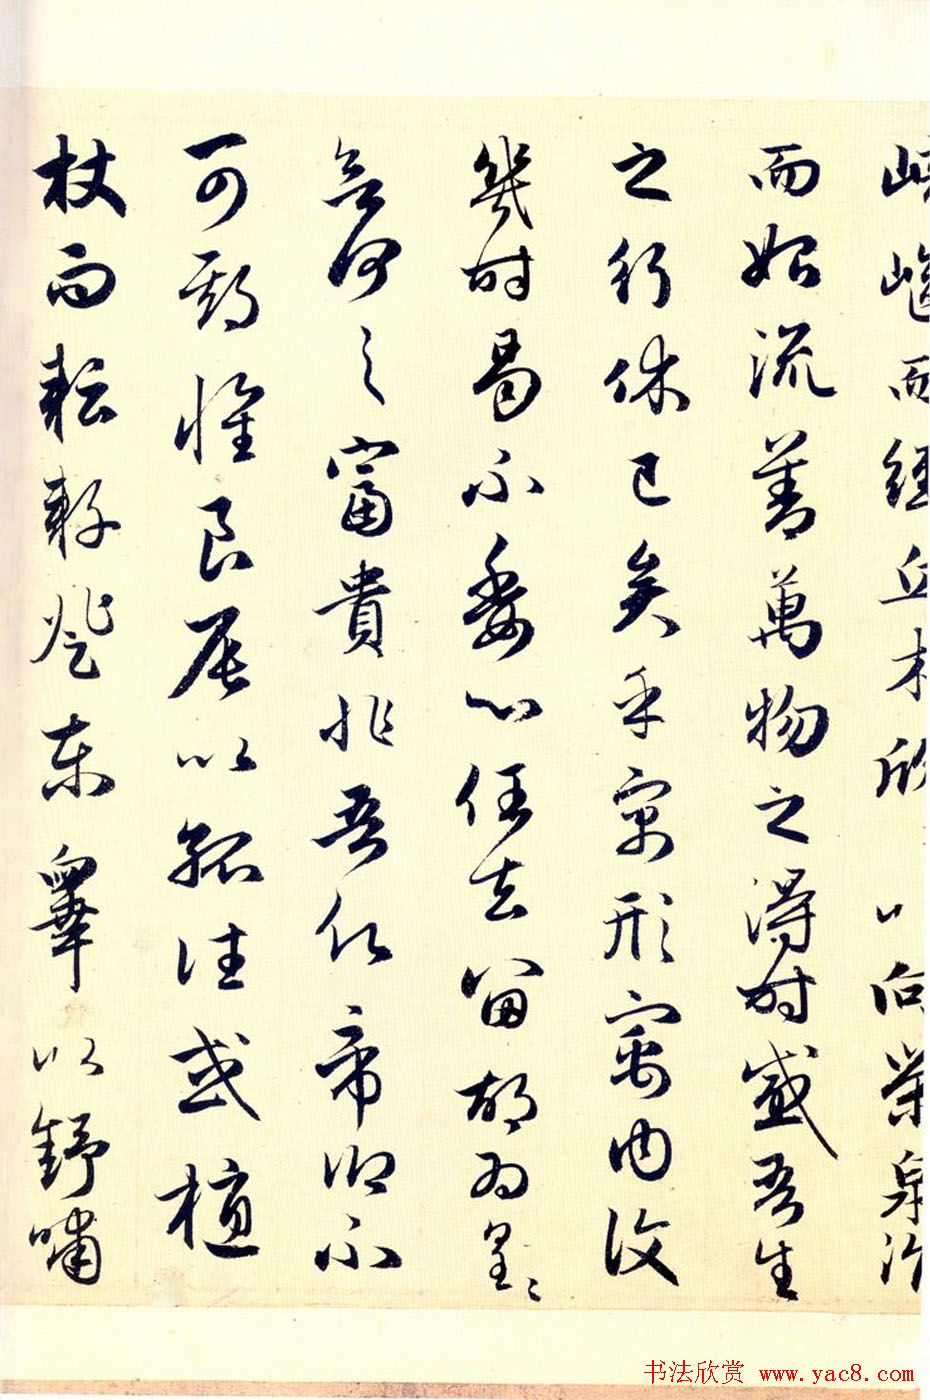 崎嶇而經丘木欣以向榮泉涓
而始流善萬物之得時感吾生
之行休已矣乎寓形寓內復
幾時曷不委心任去留胡為皇〻
何之富貴非吾願帝鄉不
可期懷良辰以孤往或植
杖而耘耔登東皋以舒嘯
书法欣赏 www.yac8.com